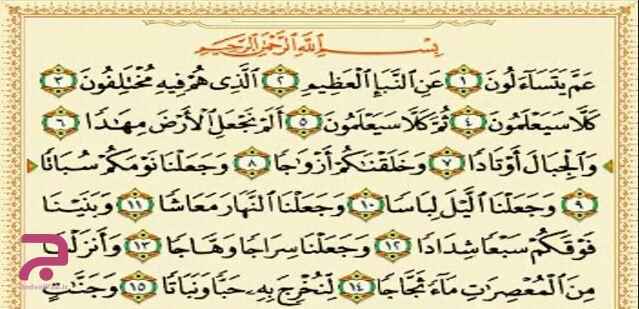 بِسْمِ اللَّهِ الرَّحْمَٰنِ الرَّحِيمِ
عَمَّ يَتَسَآءَلُونَ ١ عَنِ النَّبَإِ الْعَظِيمِ ٢ الَّذِى هُمْ فِيهِ مُخْتَلِفُونَ ٣
كَلَّا سَيَعْلَمُونَ ٤ ثُمَّ كَلَّا سَيَعْلَمُونَ ٥ أَلَمْ نَجْعَلِ الْأَرْضَ مِهَٰدًا ٦
وَالْجِبَالَ أَوْتَادًا ٧ وَخَلَقْنَٰكُمْ أَزْوَٰجًا ٨ وَجَعَلْنَا نَوْمَكُمْ سُبَاتًا
٩ وَجَعَلْنَا الَّيْلَ لِبَاسًا ١٠ وَجَعَلْنَا النَّهَارَ مَعَاشًا ١١ وَبَنَيْنَا
فَوْقَكُمْ سَبْعًا شِدَادًا ١٢ وَجَعَلْنَا سِرَاجًا وَهَّاجًا ١٣ وَأَنزَلْنَا
مِنَ الْمُعْصِرَٰتِ مَآءً ثَجَّاجًا ١٤ لِّنُخْرِجَ بِهِۦ حَبًّا وَنَبَاتًا ١٥ وَجَنَّٰتٍ